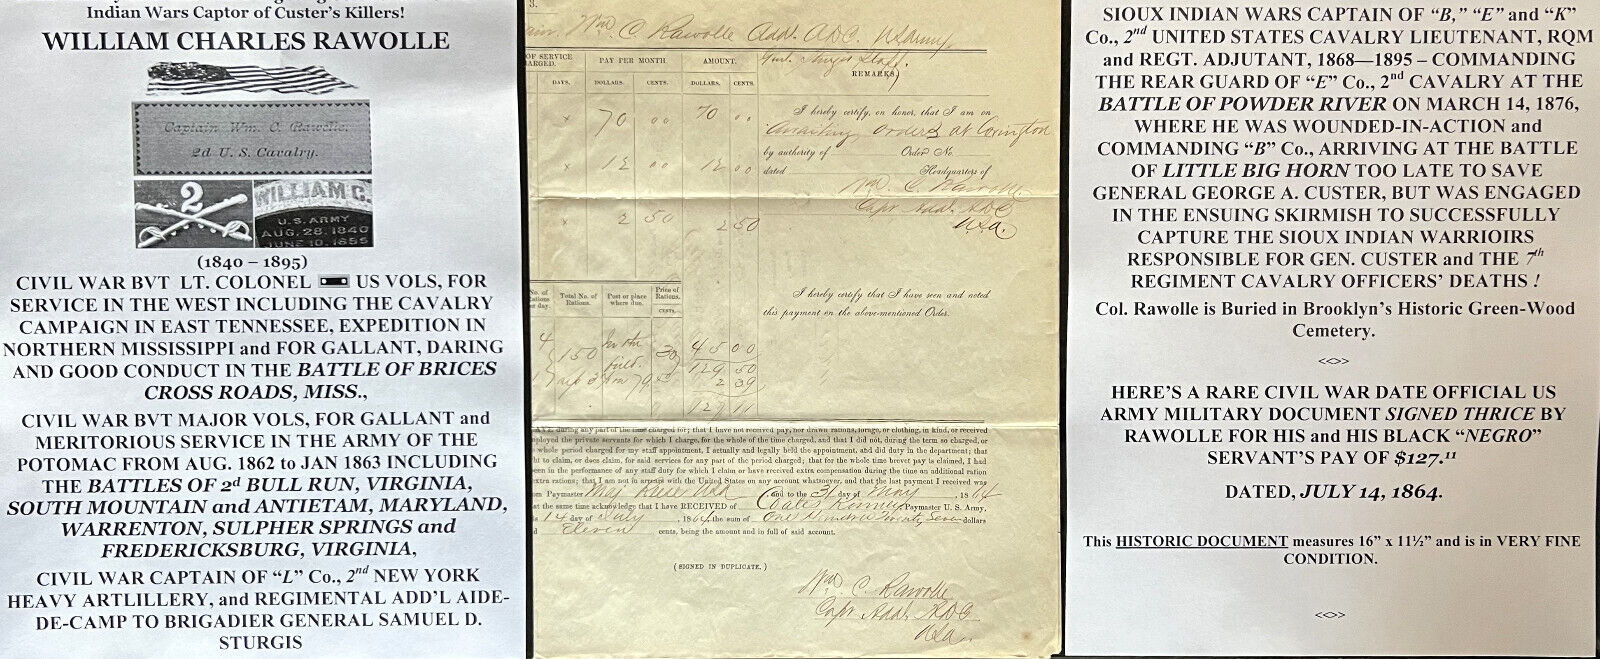 Indian Wars Captor of Custer's Killers!
WILLIAM CHARLES RAWOLLE
Captain Wm. C. Rawolle,
2d U. S. Cavalry.
2
WILLIAM C.
U.S. ARMY
AUG. 28. 1840
JUNE 10. 1895
(1840 – 1895)
CIVIL WAR BVT LT. COLONEL US VOLS, FOR
SERVICE IN THE WEST INCLUDING THE CAVALRY
CAMPAIGN IN EAST TENNESSEE, EXPEDITION IN
NORTHERN MISSISSIPPI and FOR GALLANT, DARING
AND GOOD CONDUCT IN THE BATTLE OF BRICES
CROSS ROADS, MISS.,
CIVIL WAR BVT MAJOR VOLS, FOR GALLANT and
MERITORIOUS SERVICE IN THE ARMY OF THE
POTOMAC FROM AUG. 1862 to JAN 1863 INCLUDING
THE BATTLES OF 2d BULL RUN, VIRGINIA,
SOUTH MOUNTAIN and ANTIETAM, MARYLAND,
WARRENTON, SULPHER SPRINGS and
FREDERICKSBURG, VIRGINIA,
CIVIL WAR CAPTAIN OF "L" Co., 2nd NEW YORK
HEAVY ARTLILLERY, and REGIMENTAL ADD'L AIDE-
DE-CAMP TO BRIGADIER GENERAL SAMUEL D.
STURGIS
3.
Wm C. Rawolle Addl. ADC. US Army,
Genl. Sturgis Staff.
OF SERVICE
PAY PER MONTH
AMOUNT.
REMARKS
DAYS. DOLLARS. CENTS. DOLLARS. CENTS.
× 70 00 70 00
× 12 00 12 00
× 2 50 2 50
I hereby certify, on honor, that I am on
Awaiting orders at Covington
by authority of Order No.
dated Headquarters of
Wm. C. Rawolle
Capt. Addl. ADC
U.S.A.
No. of Rations per day. Total No. of Rations. Post or place where due. Price of Rations.
CENTS.
I hereby certify that I have seen and noted
this payment on the above-mentioned Order.
4 150 In the field. 30 45 00
129 50
2 39
127 11
during any part of the time charged for; that I have not received pay, nor drawn rations, forage, or clothing, in kind, or received
employed the private servants for which I charge, for the whole of the time charged, and that I did not, during the term so charged, or
whole period charged for my staff appointment, I actually and legally held the appointment, and did duty in the department; that
to claim, or does claim, for said services for any part of the period charged; that for the whole time brevet pay is claimed, I had
been in the performance of any staff duty for which I claim or have received extra compensation during the time an additional ration
extra rations; that I am not in arrears with the United States on any account whatsoever, and that the last payment I received was
Paymaster Maj and to the 31 day of May, 1864
at the same time acknowledge that I have RECEIVED of Paymaster U. S. Army,
14 day of July, 1864 the sum of One Hundred Twenty Seven dollars
Eleven cents, being the amount and in full of said account.
(SIGNED IN DUPLICATE.)
Wm. C. Rawolle
Capt. Addl. ADC
USA.
SIOUX INDIAN WARS CAPTAIN OF "B," "E" and "K"
Co., 2nd UNITED STATES CAVALRY LIEUTENANT, RQM
and REGT. ADJUTANT, 1868—1895 – COMMANDING
THE REAR GUARD OF "E" Co., 2nd CAVALRY AT THE
BATTLE OF POWDER RIVER ON MARCH 14, 1876,
WHERE HE WAS WOUNDED-IN-ACTION and
COMMANDING "B" Co., ARRIVING AT THE BATTLE
OF LITTLE BIG HORN TOO LATE TO SAVE
GENERAL GEORGE A. CUSTER, BUT WAS ENGAGED
IN THE ENSUING SKIRMISH TO SUCCESSFULLY
CAPTURE THE SIOUX INDIAN WARRIOIRS
RESPONSIBLE FOR GEN. CUSTER and THE 7th
REGIMENT CAVALRY OFFICERS' DEATHS !
Col. Rawolle is Buried in Brooklyn's Historic Green-Wood
Cemetery.
<<>>
HERE'S A RARE CIVIL WAR DATE OFFICIAL US
ARMY MILITARY DOCUMENT SIGNED THRICE BY
RAWOLLE FOR HIS and HIS BLACK "NEGRO"
SERVANT'S PAY OF $127.11
DATED, JULY 14, 1864.
This HISTORIC DOCUMENT measures 16" x 11½" and is in VERY FINE
CONDITION.
<<>>